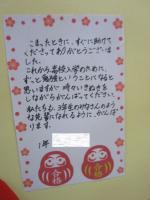 こまったときに、すぐに助けて
くださってありがとうございま
した。
これから高校入学のために、
ずっと勉強ということになると
思いますが、時々いきぬきを
しながらがんばってください。
私たちも、3年生のみなさんのよう
な先輩になれるように、がんば
ります。
1年
合
合